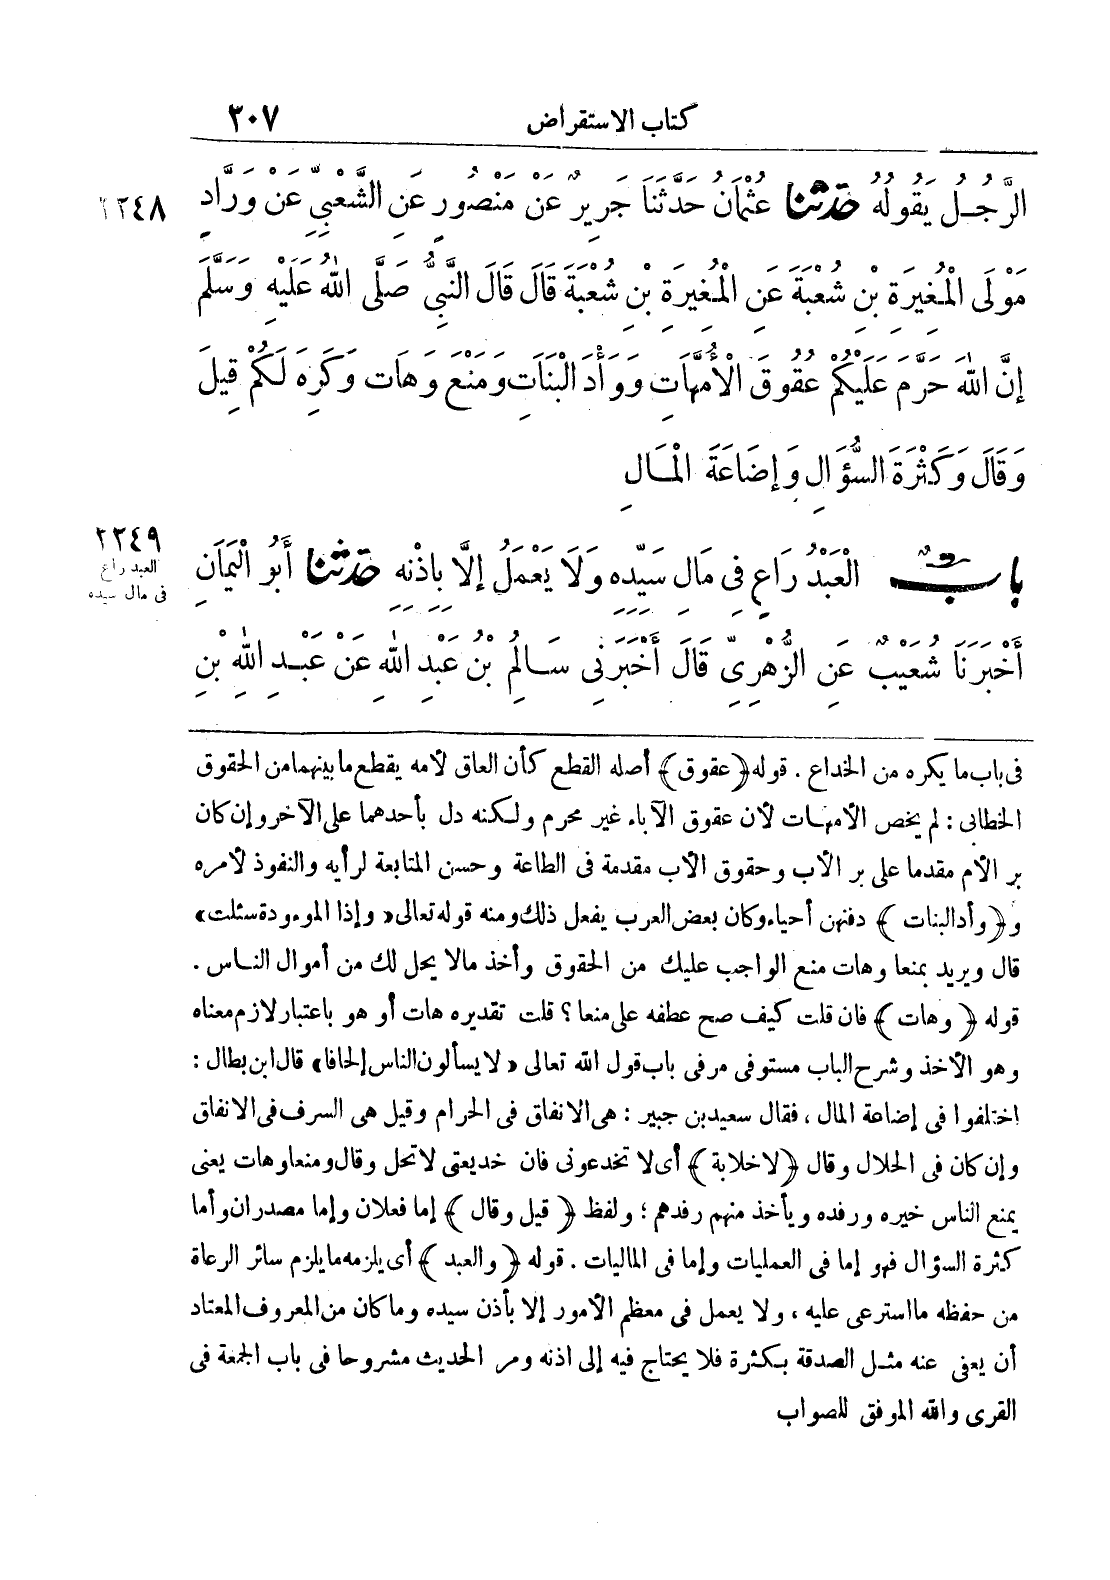 كتاب الاستقراض ٣٠٧
الرَّجُلُ يَقُولُهُ حَدَّثَنَا عُثْمَانُ حَدَّثَنَا جَرِيرٌ عَنْ مَنْصُورٍ عَنِ الشَّعْبِيِّ عَنْ وَرَّادٍ
٢٢٤٨
مَوْلَى الْمُغِيرَةِ بْنِ شُعْبَةَ عَنِ الْمُغِيرَةِ بْنِ شُعْبَةَ قَالَ قَالَ النَّبِيُّ صَلَّى اللهُ عَلَيْهِ وَسَلَّمَ
إِنَّ اللهَ حَرَّمَ عَلَيْكُمْ عُقُوقَ الْأُمَّهَاتِ وَوَأْدَ الْبَنَاتِ وَمَنْعَ وَهَاتِ وَكَرِهَ لَكُمْ قِيلَ
وَقَالَ وَكَثْرَةَ السُّؤَالِ وَإِضَاعَةَ الْمَالِ
٢٢٤٩
العبد راع
فى مال سيده
بَابٌ الْعَبْدُ رَاعٍ فِي مَالِ سَيِّدِهِ وَلَا يَعْمَلُ إِلَّا بِإِذْنِهِ حَدَّثَنَا أَبُو الْيَمَانِ
أَخْبَرَنَا شُعَيْبٌ عَنِ الزُّهْرِيِّ قَالَ أَخْبَرَنِي سَالِمُ بْنُ عَبْدِ اللهِ عَنْ عَبْدِ اللهِ بْنِ
فى باب ما يكره من الخداع . قوله ﴿عقوق﴾ أصله القطع كأن العاق لأمه يقطع ما بينهما من الحقوق
الخطابى : لم يخص الأمهات لأن عقوق الآباء غير محرم ولكنه دل بأحدهما على الآخر وإن كان
بر الأم مقدما على بر الأب وحقوق الأب مقدمة فى الطاعة وحسن المتابعة لرأيه والنفوذ لأمره
و﴿وأد البنات﴾ دفنهن أحياء وكان بعض العرب يفعل ذلك ومنه قوله تعالى «وإذا الموءودة سئلت»
قال ويريد بمنعا وهات منع الواجب عليك من الحقوق وأخذ مالا يحل لك من أموال الناس .
قوله ﴿وهات﴾ فان قلت كيف صح عطفه على منعا ؟ قلت تقديره هات أو هو باعتبار لازم معناه
وهو الأخذ وشرح الباب مستوفى مر فى باب قول الله تعالى «لا يسألون الناس إلحافا» قال ابن بطال :
اختلفوا فى إضاعة المال ، فقال سعيد بن جبير : هى الانفاق فى الحرام وقيل هى السرف فى الانفاق
وإن كان فى الحلال وقال ﴿لا خلابة﴾ أى لا تخدعونى فان خديعتى لا تحل وقال ومنعا وهات يعنى
يمنع الناس خيره ورفده ويأخذ منهم رفدهم ؛ ولفظ ﴿قيل وقال﴾ إما فعلان وإما مصدران وأما
كثرة السؤال فهو إما فى العمليات وإما فى الماليات . قوله ﴿والعبد﴾ أى يلزمه ما يلزم سائر الرعاة
من حفظه ما استرعى عليه ، ولا يعمل فى معظم الأمور إلا بأذن سيده وما كان من المعروف المعتاد
أن يعفى عنه مثل الصدقة بكثرة فلا يحتاج فيه إلى اذنه ومر الحديث مشروحا فى باب الجمعة فى
القرى والله الموفق للصواب